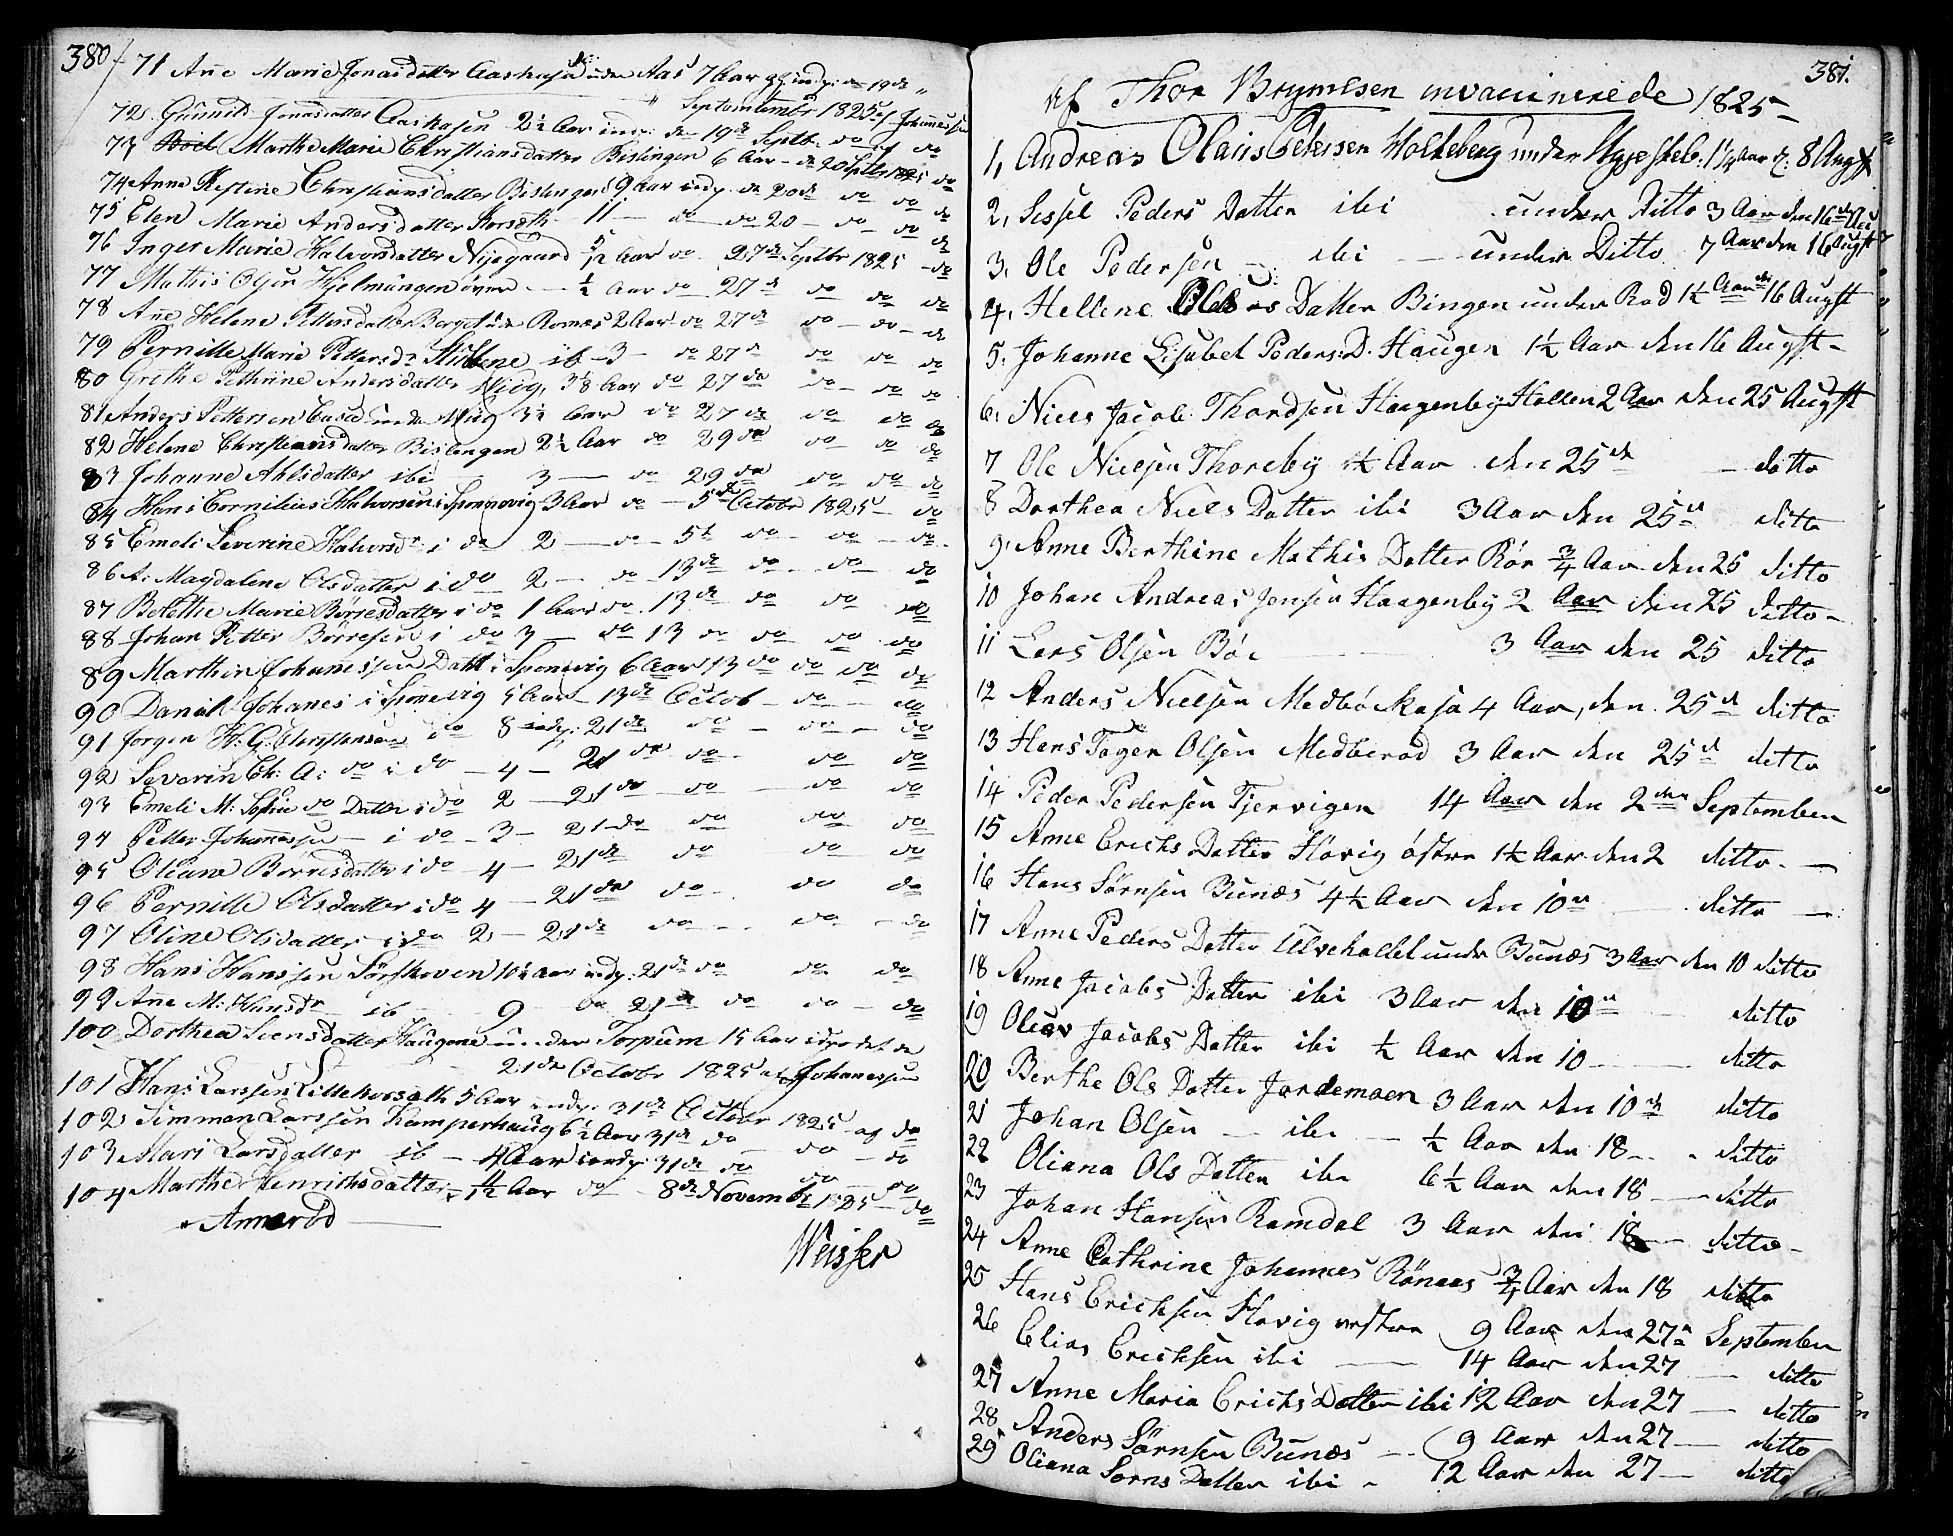 380
71 Ane Marie Jonasdatter Aaskasa under Aas 7 Aar indp: den 19de
Septembr 1825 af Johannessen
72 Gunnild Jonasdatter Aaskasen 2½ Aar indp: den 19de Septbr do af do
73 Marthe Marie Christiansdatter Bislingen 6 Aar - de 20 Septbr 1825 do
74 Anne Kestine Christiansdatter Bislingen 9 Aar indp. de 20de do do do
75 Elen Marie Andersdatter Korsæth 11 - do - do 20 - do - do do
76 Inger Marie Halvorsdatter Nijegaard 5/12 Aar do 27de Septbr 1825 - do
77 Mathis Olsen Hjelmungen øvre - ½ Aar do 27de do do do
78 Ane Helene Pettersdatter Berget under Romes 2 Aar do 27de do - do - do
79 Pernille Marie Pettersdr ib - 3 - do 27de do do do
80 Grethe Pethrine Andersdatter 3/8 Aar do 27de do - do do
81 Anders Pettersen under 3½ Aar do 27de do do do
82 Helene Christiansdatter Bislengen 2½ Aar do 29de do do do
83 Johanne Ahlsdatter ibi 3 - do 29de do do do
84 Hans Cornilius Halvorsen i Sponevig 3 Aar do - 5de Octobr 1825 - do
85 Emeli Severine Halvorsdr i do 2 - do - 5t do - do - do
86 A: Magdalene Olsdatter i do 2 - do 13de do - do - do
87 Bolette Marie Børresdatter i do 1 Aar do 13de do do do
88 Johan Petter Børresen i do 3 - do 13 do do do do
89 Marthin Johanissen Dahl i Sponevig 6 Aar 13 do do do do
90 Daniel Johanes i Sponevig 5 Aar - 13de Octob - do - do
91 Jørgen H: G: Christensen do 8 indp: 21de do - do - do
92 Severin Ch: A: do i do - 4 - 21de do - do do
93 Emeli M: Sophie do Datter i do 2 - 21de - do - do do
94 Petter Johannessen - i do - 3 - 21 do do do do
95 Oliane Børresdatter i do - 4 - 21de do do do
96 Pernille Olsdatter i do 4 - 21de do do do
97 Oline Olsdatter - i do 2 - 21de do - do - do
98 Hans Hanssen Sørskoven 10½ Aar indp: 21de do do do
99 Ane M: Hansdr ib - 9 - do 21de - do do - do
100 Dorthea Svensdatter Haugene under Torpum 15 Aar idpodet de
21de Octobr 1825 af Johanessen
101 Hans Larssen Lillekorsæth 5 Aar indp: 31de Octobr 1825 af do
102 Simmen Larssen Kamperhaug 6½ Aar 31de do - do - do
103 Mari Larsdatter ib - 4 Aar indp: 31de do do - do
104 Marthe Henrichsdatter 1½ Aar do - 8de Novembr 1825 - do
Annerød
Weisser
381.
Af Thor Brynilsen invaccinerede 1825
1, Andreas Olaus Petersen Holkeberg under 1¼ Aar d: 8 Augst
2, Sissel Peders Datter ibi under Ditto 3 Aar den 16de Do
3, Ole Pedersen - ibi - under Ditto 7 Aar den 16 Augst
4, Hellene Datter Bingen under Rød 1½ Aar den 16 Augst
5, Johanne Lisabet Peders: D. Haugen 1½ Aar den 16 Augst -
6, Niels Jacob Thordsen Haagenbÿ Hallen 2 Aar den 25 Augst
7 Ole Nielsen Thorebÿ 1½ Aar den 25de - ditto
8 Dorthea Niels Datter ibi 3 Aar den 25de ditto
9, Anne Berthine Mathis Datter Rør ¾ Aar den 25 ditto
10 Johan Andreas Jensen Haagenbÿ 2 Aar den 25 ditto -
11 Lars Olsen Bøe 3 Aar den 25 ditto
12 Anders Nielsen Medbøe Kasa 4 Aar, den 25de ditto
13 Hans Tøger Olsen Medberød 3 Aar den 25de ditto
14 Peder Pedersen Tjervigen 14 Aar den 2den September
15 Anne Erichs Datter Høvig østre 1½ Aar den 2 ditto -
16 Hans Sørnsen Bunæs 4½ Aar den 10de ditto -
17 Anne Peders Datter Ulvehallet under Bunæs 3 Aar den 10 ditto
18 Anne Jacobs Datter ibi 3 Aar den 10de ditto
19 Oliav Jacobs Datter ibi ½ Aar den 10 - ditto
20 Berthe Ols Datter Jordemoen 3 Aar den 10de ditto
21 Johan Olsen - ibi - ½ Aar den 18 - ditto
22 Oliana Ols Datter ibi 6½ Aar den 18 - ditto
23 Johan Hansen Ramdal 3 Aar den 18 - ditto -
24 Anne Cathrine Johannes Rønaas ¾ Aar den 18 ditto
25 Hans Erichsen Høvig vestre 9 Aar den 27de September
26 Elias Erichsen ibi - 14 Aar den 27 - ditto
27 Anne Maria Erichs Datter ibi 12 Aar den 27 - ditto
28 Anders Sørnsen Bunæs - 9 Aar den 27 - ditto
29 Oliana Sørns Datter ibi - 12 Aar den 27 - ditto